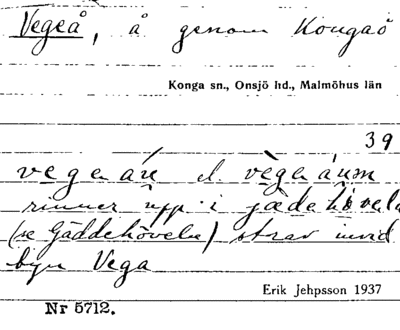 Vegeå, å genom Kongaö
Konga sn., Onsjö hd., Malmöhus län
39
vegen åre el. vegenåum
rinner upp i jædehövela
(se Gäddehöveln) strax invid
byn Vega
Erik Jehpsson 1937
Nr 5712.